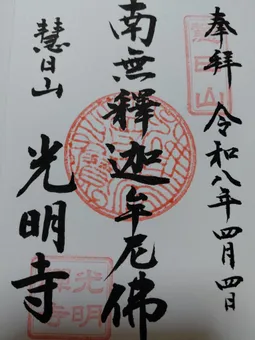 奉拝
令和八年四月四日
南無釋迦牟尼佛
慧日山
光明寺
慧日山
光明禅寺